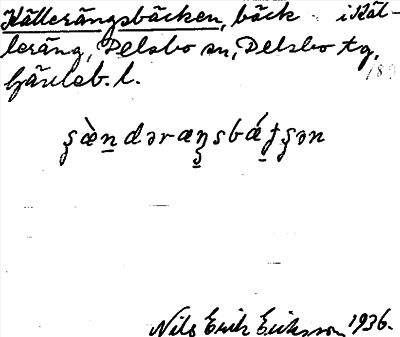 Källerängsbäcken, bäck i Käl-
leräng, Delsbo sn, Delsbo tg,
Gävleb. l.
Nils Erik Eriksson 1936.